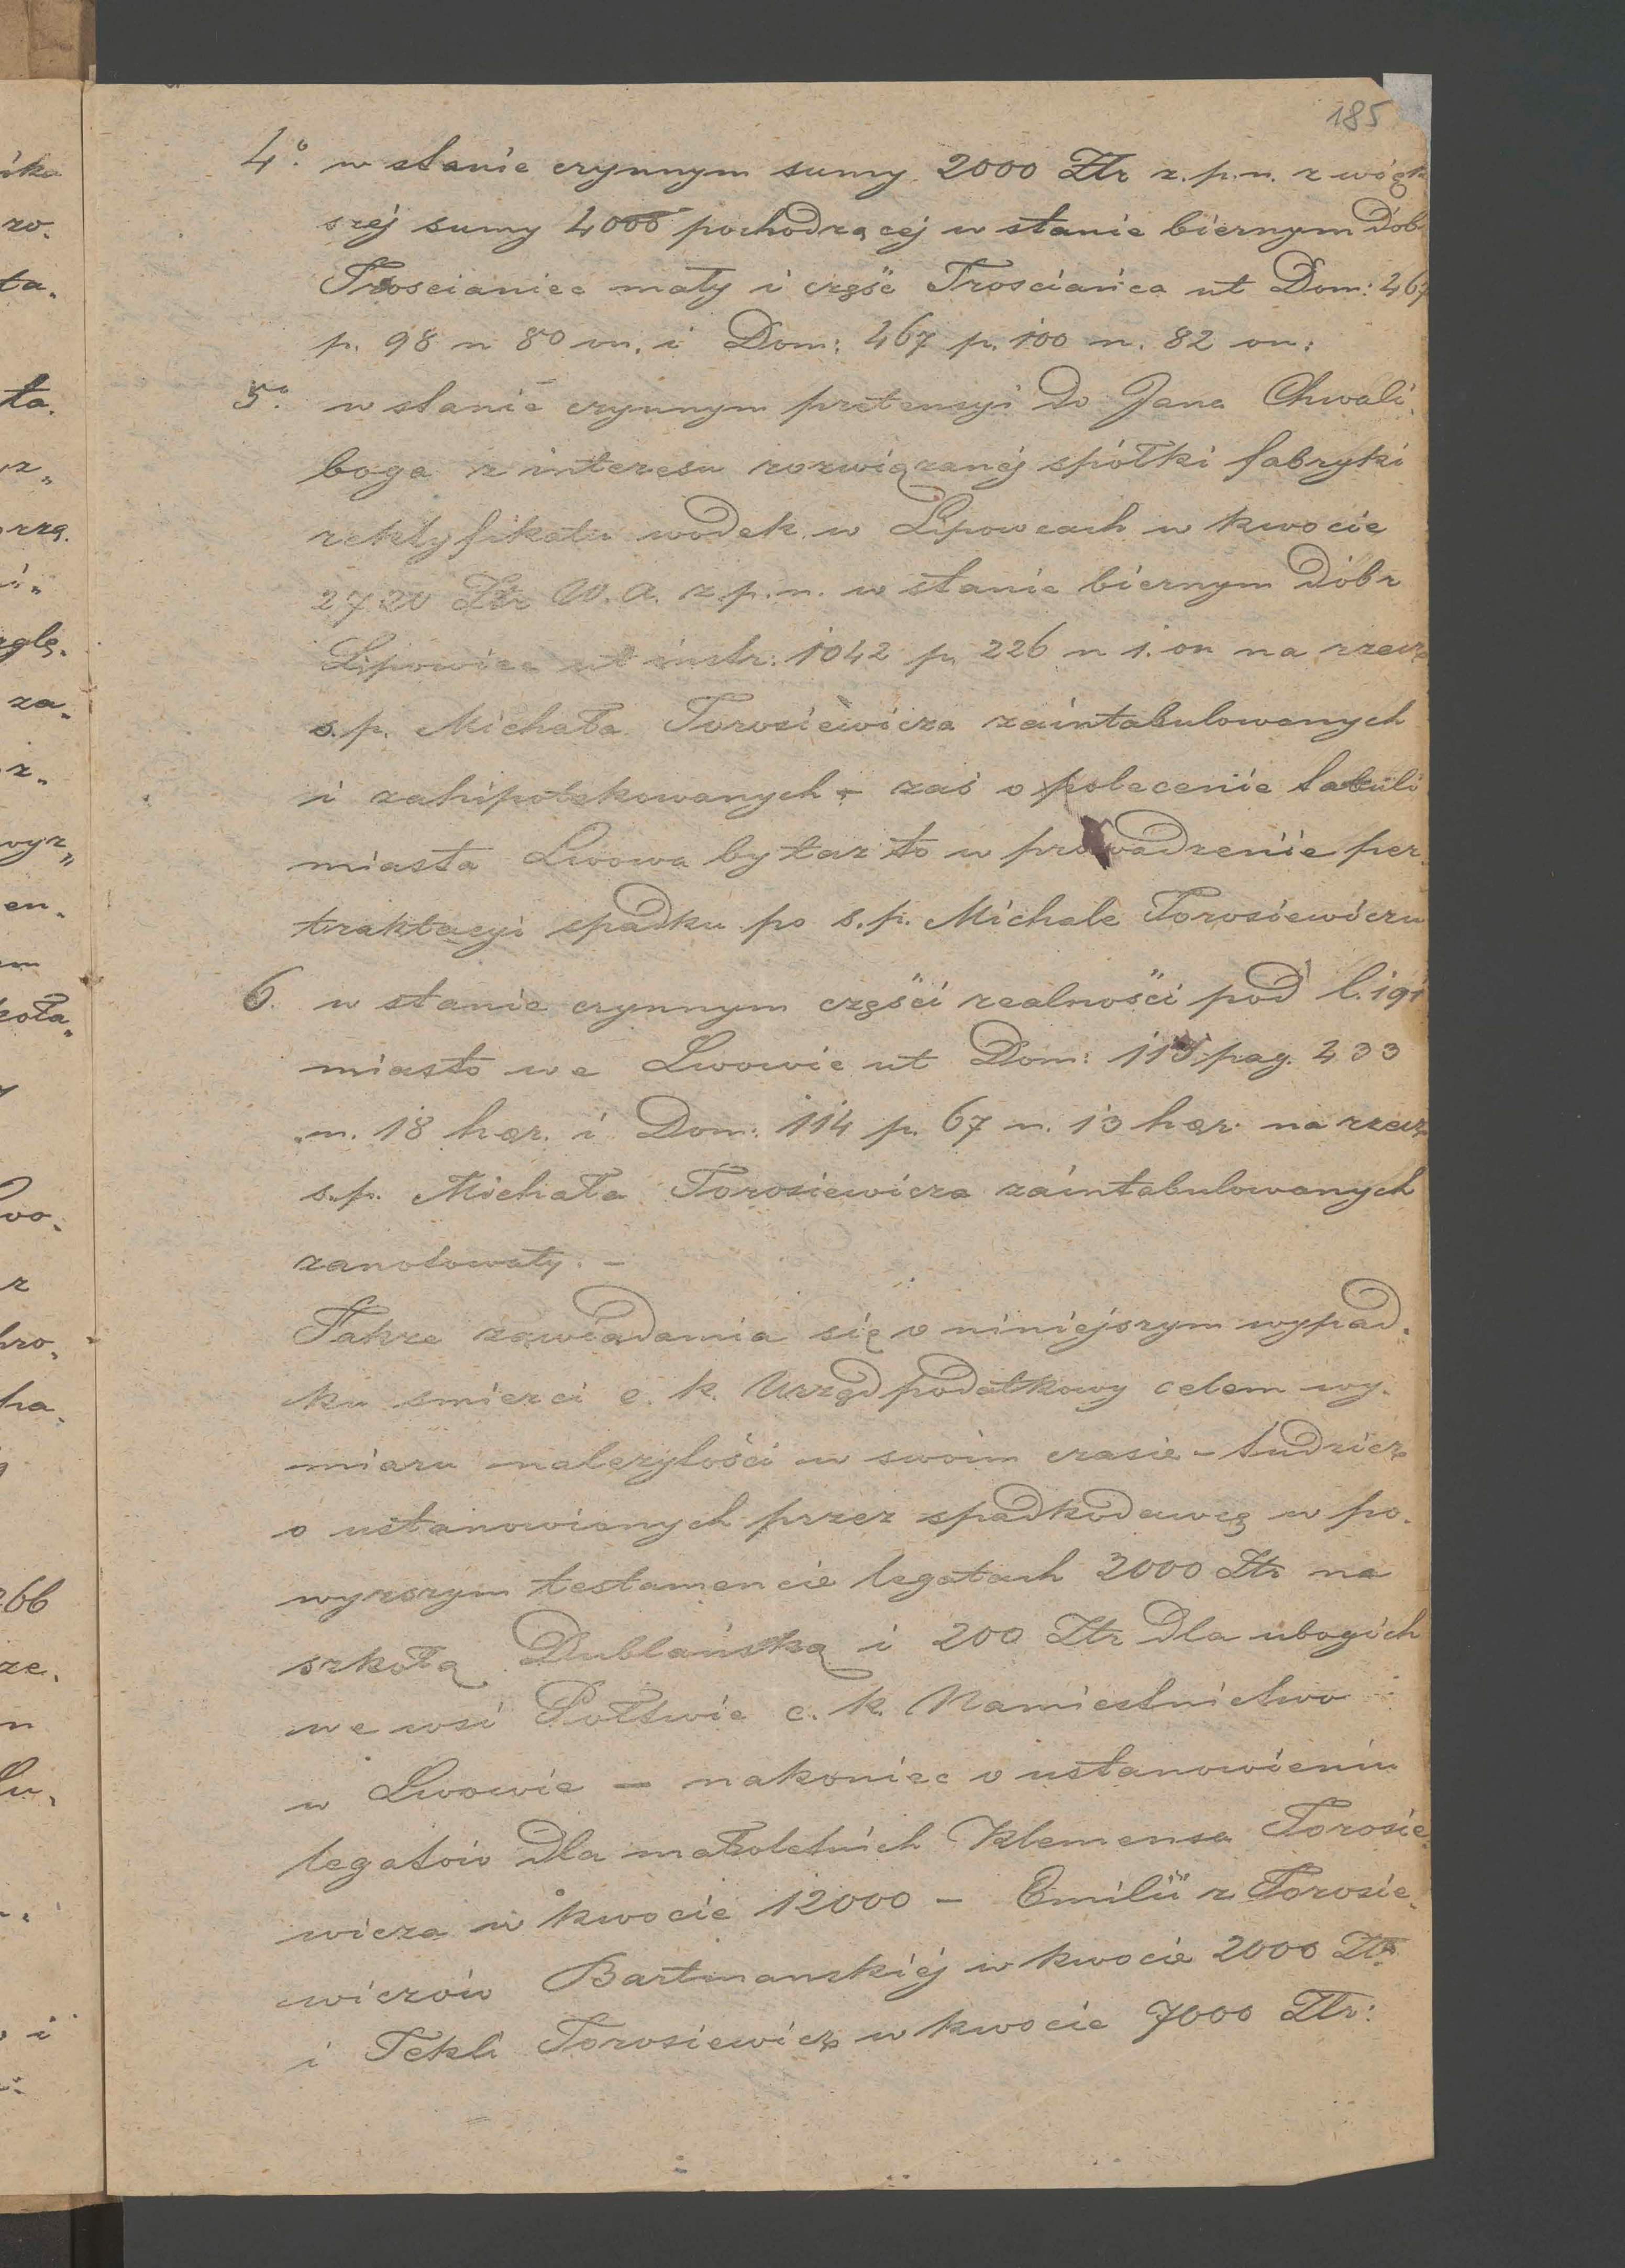 185
4º. w stanie czynnym sumy 2000 Ztr z.p.n. z więk
széj sumy 4000 pochodzącéj w stanie biernym Dób
Trościaniec mały i część Trościańca ut Dom: 467
p. 98 n 80 on. i Dom: 467 p. 100 n. 82 on:
5º. w stanie czynnym pretensyi do Jana Chwali„
boga z interesu rozwiązanéj spółki fabryki
rektyfikatu wodek w Lipowcach w kwocie
2720 Ztr W.A. z.p.n. w stanie biernym Dóbr
Lipowice ut instr: 1042 p. 226 n 1. on na rzecz
s.p. Michała Torosiewicza zaintabulowanych
i zahipotekowanych – zaś o polecenie tabuli
miasta Lwowa by taż to w prowadzenie per„
traktacyi spadku po s.p. Michale Torosiewiczu
6. w stanie czynnym części realności pod l. 191
miasto we Lwowie ut Dom: 113 pag. 233
n. 18 hær. i Dom: 114 p. 67 n. 13 hær. na rzecz
s.p. Michała Torosiewicza zaintabulowanych
zanotowały. –
Także zawiadamia się o niniejszym wypad„
ku smierci c. k. Urząd podatkowy celem wy„
miaru należytości w swoim czasie – tudzież
o ustanowionych przez spadkodawcę w po„
wyższym testamencie legatach 2000 Ztr na
szkołą Dublańską i 200 Ztr dla ubogich
we wsi Połtwie c. k. Namiestnictwo
w Lwowie – nakoniec o ustanowieniu
legatów dla małoletnich Klemensa Torosie„
wicza w kwocie 12000 – Emilii z Torosie„
wiczów Bartmanskiéj w kwocie 2000 Ztr.
i Tekli Torosiewicz w kwocie 7000 Ztr: